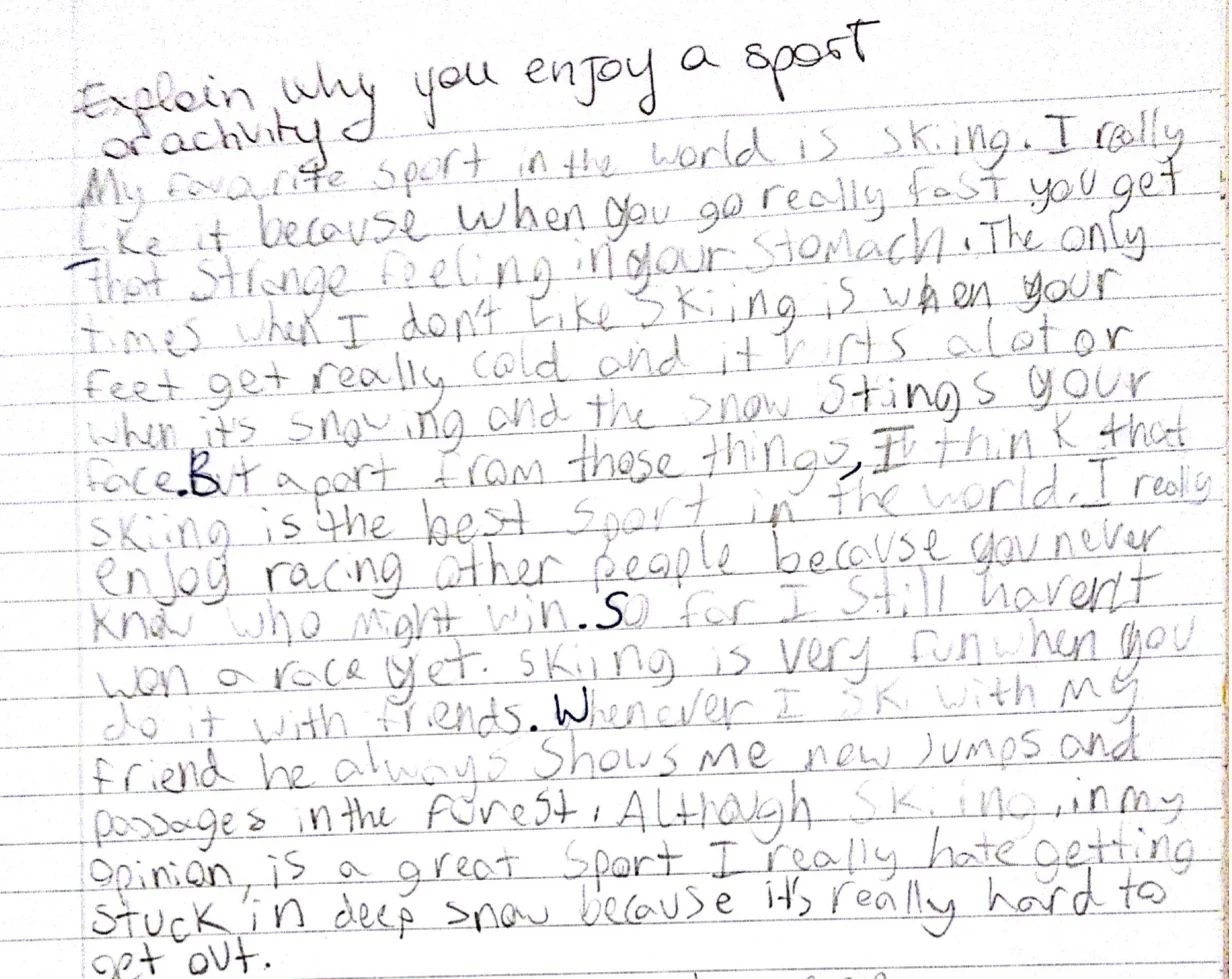 Explain why you enjoy a sport
or activity
My favarite sport in the world is skiing. I really
Like it because when you go really fast you get
that strange feeling in your stomach. The only
times when I don't Like skiing is when your
feet get really cold and it hirts alot or
when it's snowing and the snow stings your
face. But apart from those things, I think that
skiing is the best sport in the world. I really
enjoy racing other people because you never
know who might win. So far I still haven't
won a race yet. skiing is very fun when you
do it with friends. Whenever I ski with my
friend he always shows me new jumps and
passages in the forest. Although skiing, in my
opinion, is a great sport I really hate getting
stuck in deep snow because it's really hard to
get out.